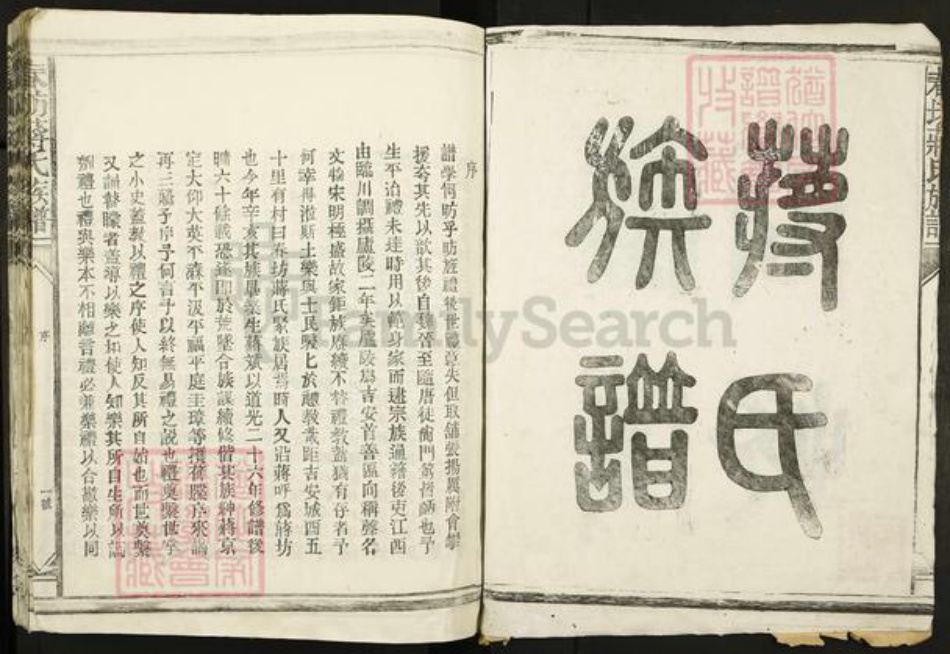 蔣氏
族譜
春坊蔣氏族譜
序
譜學何昉乎昉於禮後世禮意失但取舖張揚厲附會攀
援夸其先以欺其後自魏晉至隨唐徒衒門第指函也予
生平治禮未達時用以範身家而逮宗族通籍後吏江西
由臨川調攝廬陵二年矣廬陵為吉安首善區向稱聲名
文物宋明極盛故家鉅族賡續不替禮教蓋猶有存者予
何幸得涖斯土樂與士民興起於禮教哉距吉安城西五
十里有村曰春坊蔣氏聚族居焉時人又沿蔣呼為蔣坊
也今年辛亥其族畢業生蔣斌以道光二十六年修譜後
曠六十餘載恐遂即於荒墜合族謀續修偕其族紳蔣京
定大仰大英平森平汲平福平庭圭璋等攜舊牒序來謁
再三囑予序予何言予以終無易禮之說也禮奠繫世等
之小史蓋教以禮之序使人知反其所自始也而世奠繫
又誦瞽矇者蓋導以樂之和使人知樂其所自生所以諷
禮也禮與樂本不相離言禮必兼樂禮以合撤樂以同
序
一號
春坊蔣氏族譜
FamilySearch